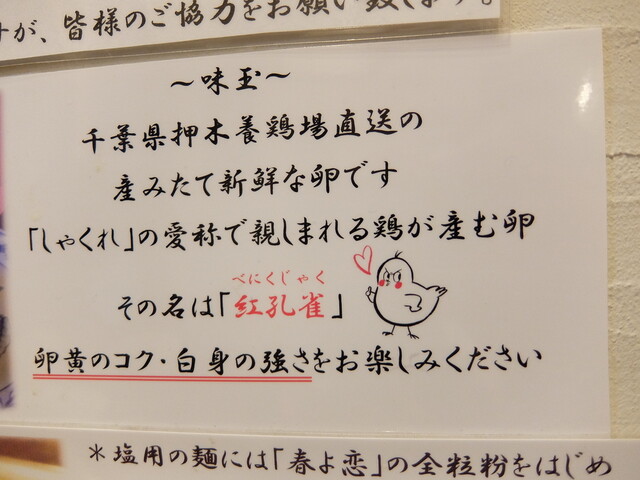 すが、皆様のご協力をお願い致します。
～味玉～
千葉県押木養鶏場直送の
産みたて新鮮な卵です
「しゃくれ」の愛称で親しまれる鶏が産む卵
べにくじゃく
その名は「紅孔雀」
卵黄のコク・白身の強さをお楽しみください
＊塩用の麺には「春よ恋」の全粒粉をはじめ